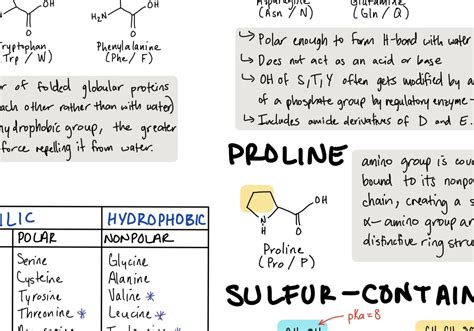 OH
H₂N
O
OH
H₂N
O
Tryptophan
(Trp / W)
Phenylalanine
(Phe / F)
Asparagine
(Asn / N)
Glutamine
(Gln / Q)
↳ Polar enough to form H-bond with water
↳ Does not act as an acid or base
↳ OH of S,T,Y often gets modified by a
of a phosphate group by regulatory enzyme
↳ Includes amide derivatives of D and E.
of folded globular proteins
each other rather than with water)
hydrophobic group, the greater
force repelling it from water.
PROLINE
amino group is cov
bound to its nonpo
chain, creating a s
α-amino group an
distinctive ring stru
OH
N
H
O
Proline
(Pro / P)
ILIC
HYDROPHOBIC
POLAR
NONPOLAR
Serine
Glycine
Cysteine
Alanine
Tyrosine
Valine *
Threonine *
Leucine *
SULFUR-CONTAIN
pKa=8